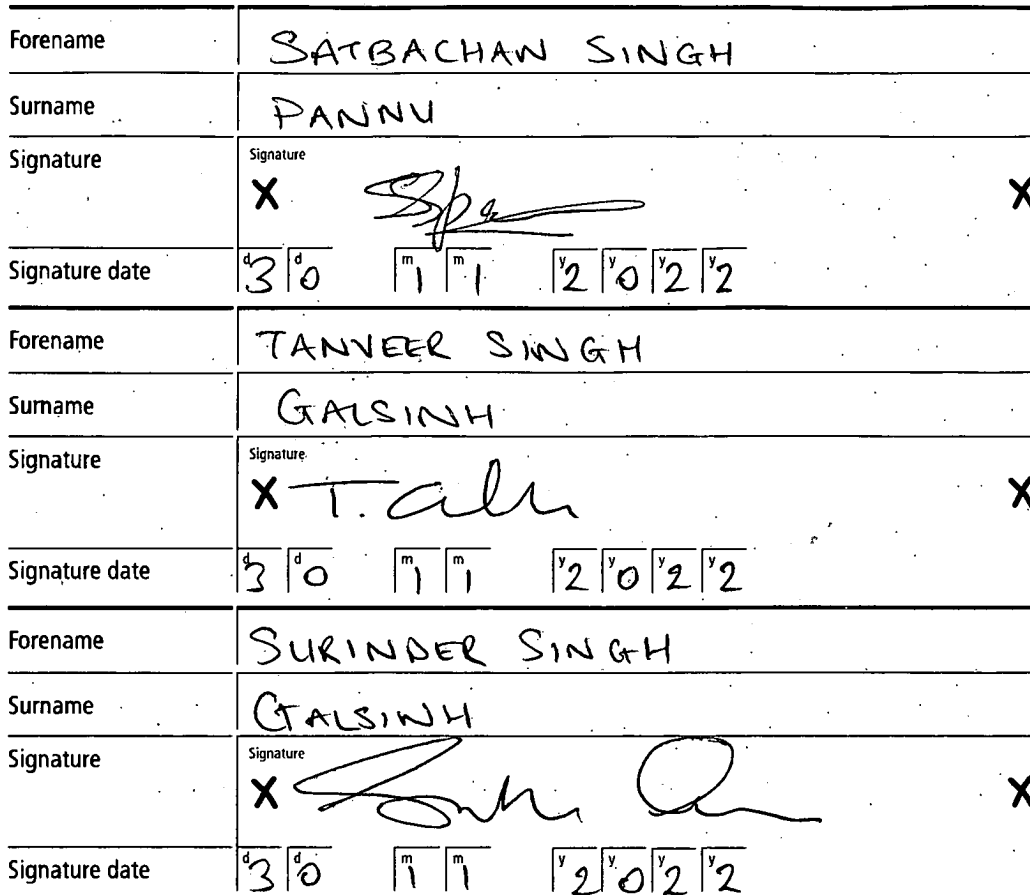 Forename SATBACHAN SINGH
Surname PANNU
Signature Signature
X X
Signature date d3 d0 m1 m1 y2 y0 y2 y2
Forename TANVEER SINGH
Surname GALSINH
Signature Signature
X X
Signature date d3 d0 m1 m1 y2 y0 y2 y2
Forename SURINDER SINGH
Surname GALSINH
Signature Signature
X X
Signature date d3 d0 m1 m1 y2 y0 y2 y2